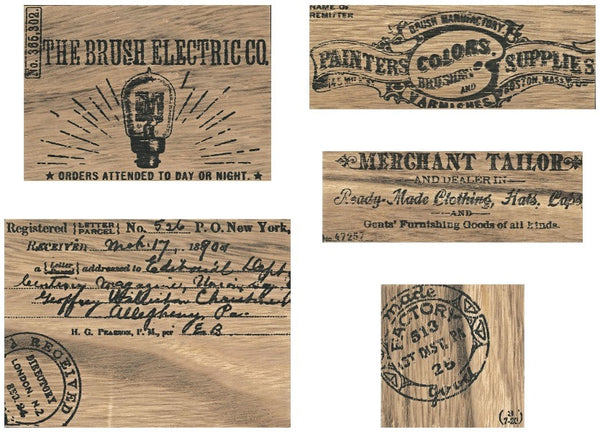 No. 365,302.
THE BRUSH ELECTRIC CO.
★ ORDERS ATTENDED TO DAY OR NIGHT. ★
NAME OF
REMITTER
BRUSH MANUFACTORY
PAINTERS COLORS. SUPPLIES
BRUSHES
AND BOSTON, MASS.
VARNISHES
MERCHANT TAILOR
AND DEALER IN
Ready-Made Clothing, Hats, Caps
AND
Gents' Furnishing Goods of all kinds.
No. 47257
Registered {LETTER PARCEL} No. 526 P. O. New York,
RECEIVED Mch. 17, 1890
a {Letter Parcel} addressed to Editorial Dept
Century Magazine, Union Sq
Geoffrey Williston Christine
Allegheny, Pa.
H. G. PEARSON, P. M., per E B
RECEIVED
DIRECTORY
LONDON, N.Z
made
FACTORY
513
1ST DIST. PA.
25
Good